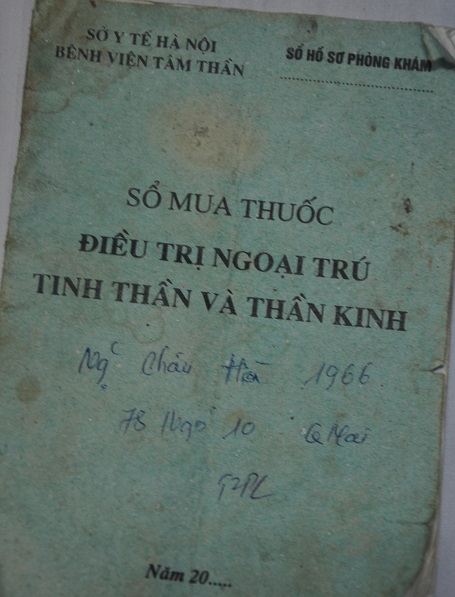 SỞ Y TẾ HÀ NỘI
BỆNH VIỆN TÂM THẦN
SỐ HỒ SƠ PHÒNG KHÁM
SỔ MUA THUỐC
ĐIỀU TRỊ NGOẠI TRÚ
TINH THẦN VÀ THẦN KINH
Châu 1966
10 Q Mai
Năm 20.....